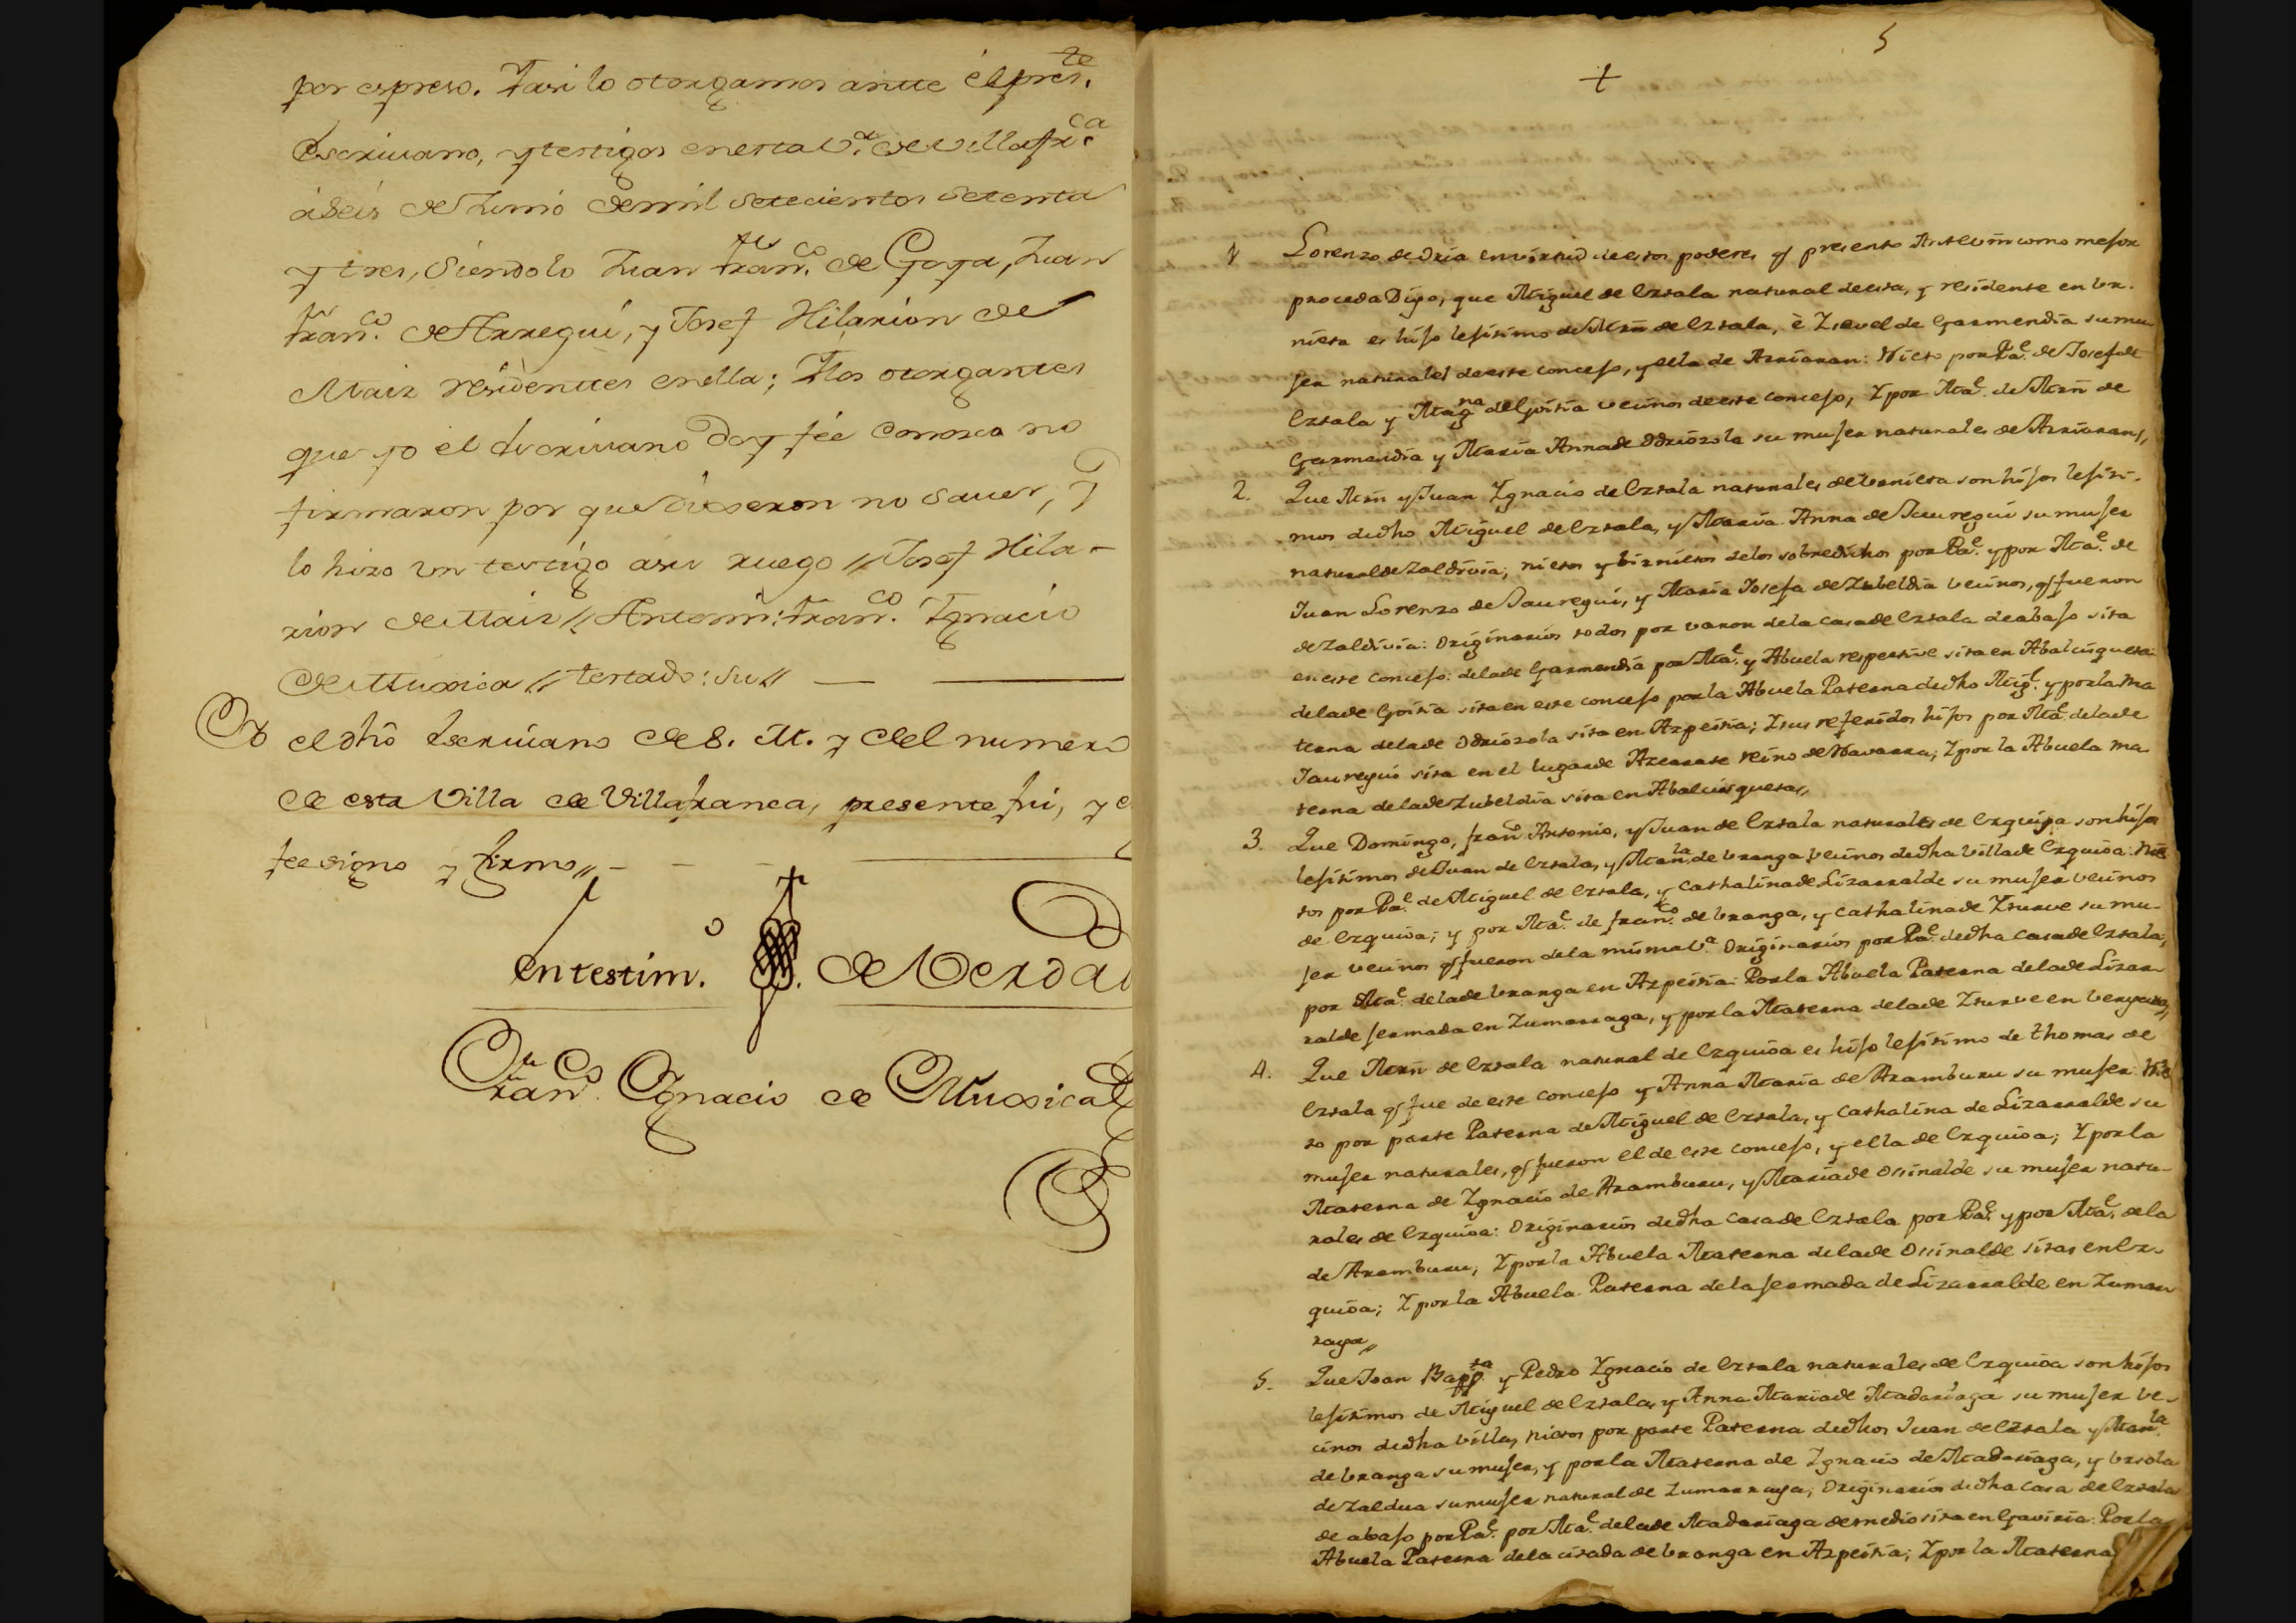 por espreso. Y asi lo otorgamos antte el pres.te
Escriuano, y testigos en esta V.a de Villafr.ca
à Seis de Junio de mil Setecientos Setenta
y tres, Siendolo Juan Fran.co de Goya, Juan
Fran.co de Arregui, y Josef Hilarion de
Maiz residenttes en ella; Ylos otorgantes
que yo el Escriuano Doy feè Conosco no
firmaron por que dixeron no Sauer, y
lo hizo un testigo asu ruego // Josef Hila-
rion de Maiz // Antemi: Fran.co Ygnacio
de Muxica // testado: su //
Yo el dho Escriuano de S. M. y del numero
de esta Villa de Villafranca, presente fui, y e
fee signo y firmo //
En testim.o de Verda
Fran.co Ygnacio de Muxica
5
+
1 Lorenzo de Oria en virtud de estos poderes q presento Ante Vm como mejor
proceda Digo, que Miguel de Eztala natural de esta, y residente en Ur-
nieta es hijo lejitimo de Mrn de Eztala, è Ysavel de Garmendia su mu-
jer naturales de este concejo, y ella de Arriaran: Nieto por Pa.e de Josef de
Eztala y Mag.na de Goitia vecinos de este concejo, Y por Ma.e de Mrn de
Garmendia y Maria Anna de Odriozola su mujer naturales de Arriaran //
2. Que Mrn y Juan Ygnacio de Eztala naturales de Urnieta son hijos lejiti-
mos de dho Miguel de Eztala, y Maria Anna de Jauregui su mujer
natural de Zaldivia; nietos y biznietos de los sobredichos por Pa.e y por Ma.e de
Juan Lorenzo de Jauregui, y Maria Josefa de Zubeldia vecinos, q fueron
de Zaldivia: Originarios todos por varon de la Casa de Eztala de abajo sita
en este Concejo: de la de Garmendia por Ma.e y Abuela respective sita en Abalcisqueta:
de la de Goitia sita en este concejo por la Abuela Paterna de dho Mig.l y por la Ma
terna de la de Odriozola sita en Azpeitia; Y sus referidos hijos por Ma.e de la de
Jauregui sita en el lugar de Azcarate reino de Navarra; Y por la Abuela ma
terna de la de Zubeldia sita en Abalcisqueta //
3. Que Domingo, Fran.co Antonio, y Juan de Eztala naturales de Ezquioga son hijos
lejitimos de Juan de Eztala, y Man.la de Uranga vecinos de dha Villa de Ezquioa: Nie
tos por Pa.e de Miguel de Eztala, y Cathalina de Lizarralde su mujer vecinos
de Ezquioa; y por Ma.e de Fran.co de Uranga, y Cathalina de Yturve su mu-
jer vecinos q fueron de la misma V.a Originarios por Pa.e de dha Casa de Eztala;
por Ma.e de la de Uranga en Azpeitia: Por la Abuela Paterna de la de Lizar
ralde sermada en Zumarraga, y por la Materna de la de Yturve en Vergara //
4. Que Mrn de Eztala natural de Ezquioa es hijo lejitimo de Thomas de
Eztala q fue de este Concejo y Anna Maria de Aramburu su mujer: Nie
to por parte Paterna de Miguel de Eztala, y Cathalina de Lizarralde su
mujer naturales, q fueron el de este concejo, y ella de Ezquioa; Y por la
Materna de Ygnacio de Aramburu, y Maria de Osinalde su mujer natu-
rales de Ezquioa: Originarios de dha Casa de Eztala por Pa.e y por Ma.e de la
de Aramburu; Y por la Abuela Materna de la de Osinalde sitas en Ez-
quioa; Y por la Abuela Paterna de la sermada de Lizarralde en Zumar
raga //
5. Que Joan Bapp.ta y Pedro Ygnacio de Eztala naturales de Ezquioa son hijos
lejitimos de Miguel de Eztala, y Anna Maria de Madariaga su mujer ve-
cinos de dha Villa, nietos por parte Paterna de dhos Juan de Eztala y Man.la
de Uranga su mujer, y por la Materna de Ygnacio de Madariaga, y Ursola
de Zaldua su mujer natural de Zumarraga; Originarios de dha Casa de Eztala
de abajo por Pa.e por Ma.e de la de Madariaga de medio sita en Gaviria: Por la
Abuela Paterna de la citada de Uranga en Azpeitia; Y por la Materna